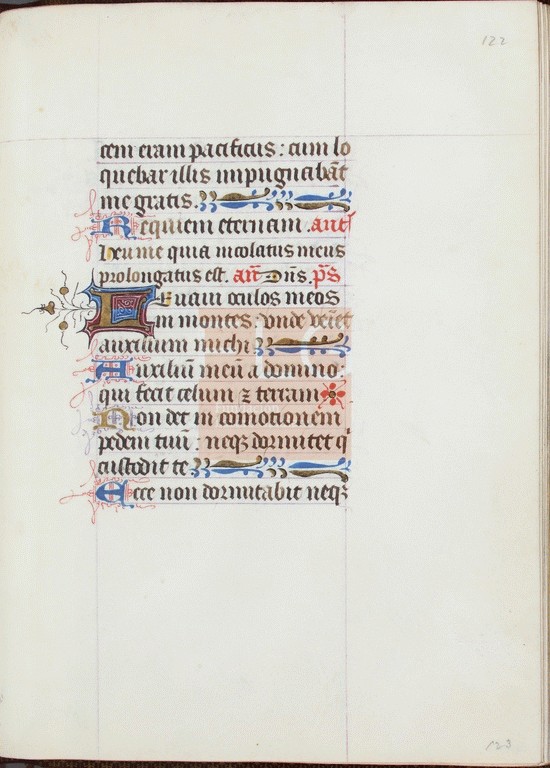 122
cem eram pacificus : cum lo
quebar illis impugnabāt
me gratis.
Requiem eternam . añt
Heu me quia incolatus meus
prolongatus est. añ Dñs. p̄s
Leuaui oculos meos
in montes : vnde veniet
auxilium michi
Auxiliū meū a domino :
qui fecit celum ⁊ terram
Non det in comotionem
pedem tuū : neqꝫ dormitet q̄
custodit te
Ecce non dormitabit neqꝫ
123